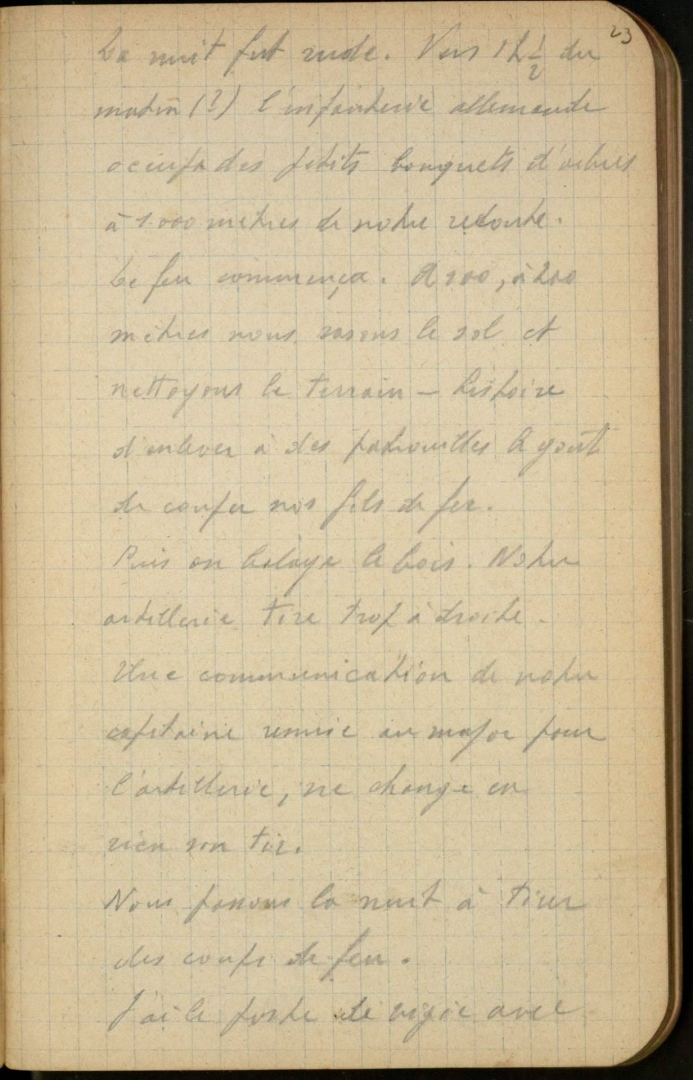 23
La nuit fut rude. Vers 1h 1/2 du
matin (?) l'infanterie allemande
occupa des petits bouquets d'arbres
à 1.000 mètres de notre redoute.
Le feu commença. A 100, à 200
mètres nous rasons le sol et
nettoyons le terrain – histoire
d'enlever à des patrouilles le goût
de couper nos fils de fer.
Puis on balaye le bois. Notre
artillerie tire trop à droite.
Une communication de notre
capitaine remise au major pour
l'artillerie, ne change en
rien son tir.
Nous passons la nuit à tirer
des coups de feu.
J'ai le poste de vigie avec